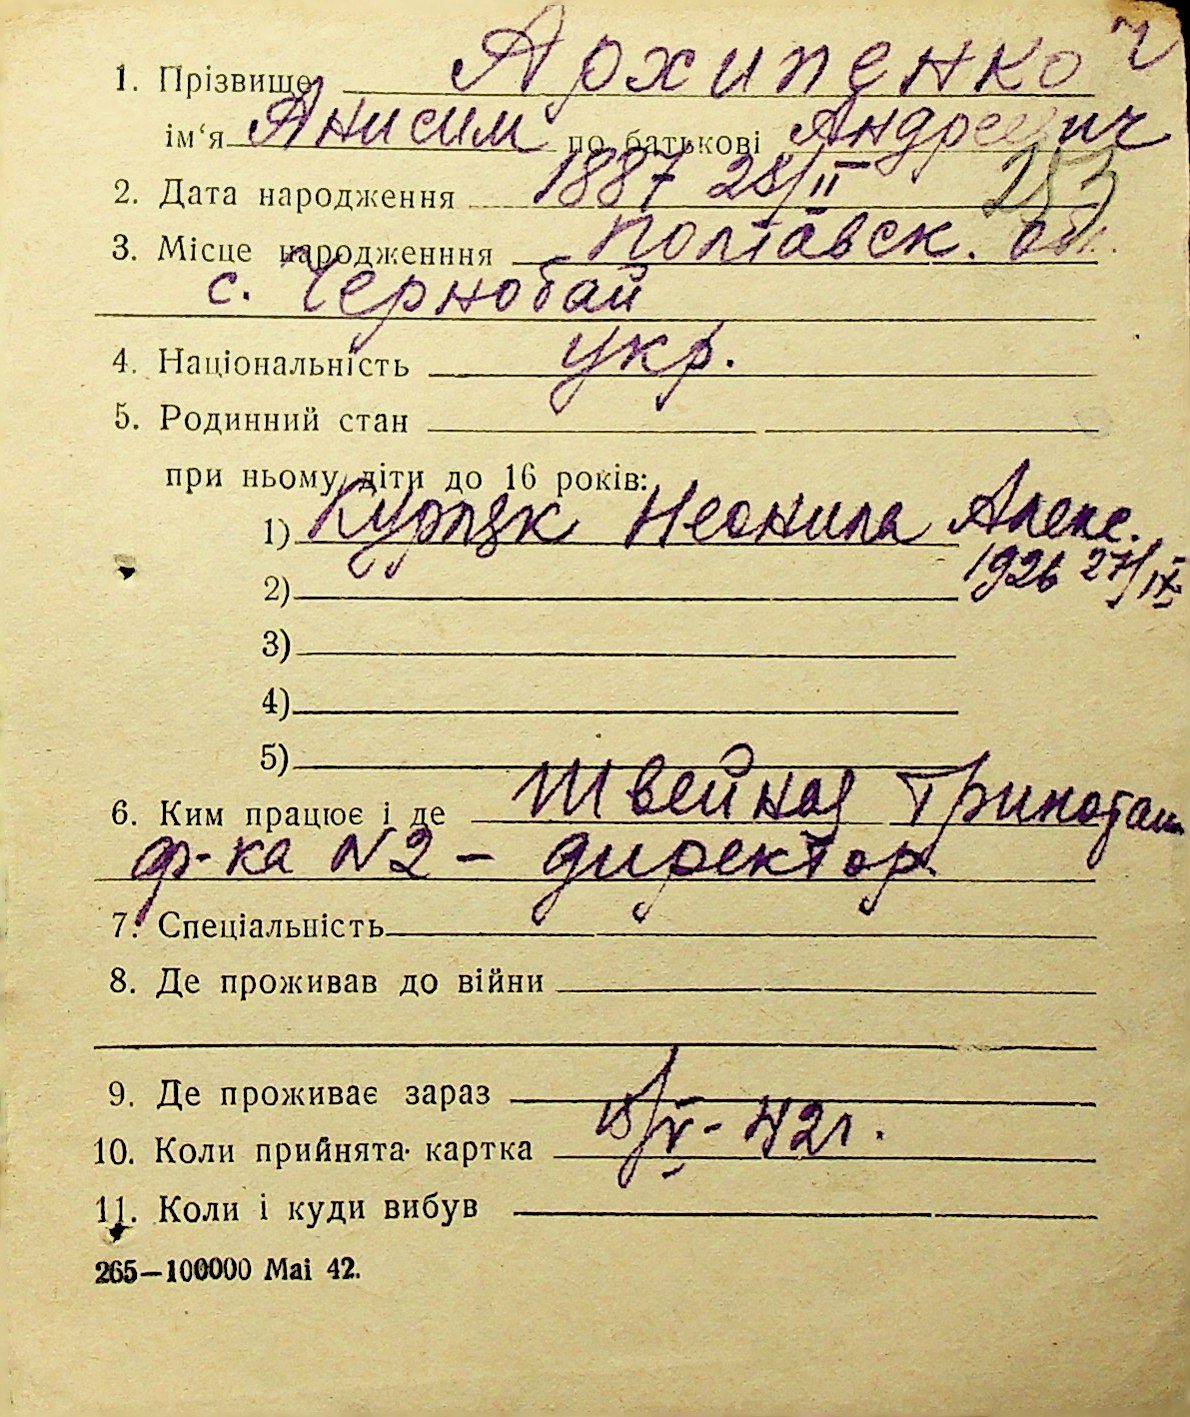 1. Прізвище Архипенко ч
ім‘я Анисим по батькові Андреевич
2. Дата народження 1887 28/II 253
3. Місце народженння Полтавск. обл.
с. Чернобай
4. Національність укр.
5. Родинний стан
при ньому діти до 16 років:
1) Неонила Алекс.
1926 27/IX
2)
3)
4)
5)
6. Ким працює і де Швейная Трикотаж
ф-ка N2 – директор
7. Спеціальність
8. Де проживав до війни
9. Де проживає зараз
10. Коли прийнята картка /V - 42 г.
11. Коли і куди вибув
265—100000 Mai 42.